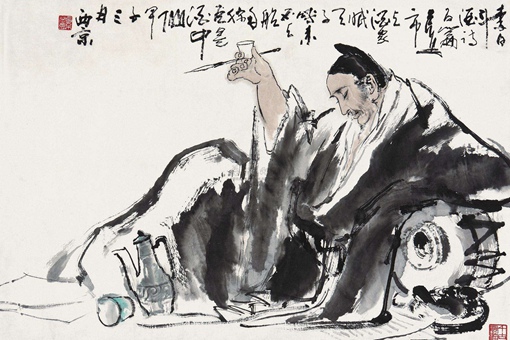 李白
斗酒诗
百篇
长安
市
上
酒家
眠
天
子
呼来
不上
船
自
称
臣是
酒中
仙
甲
子
三
月
西京